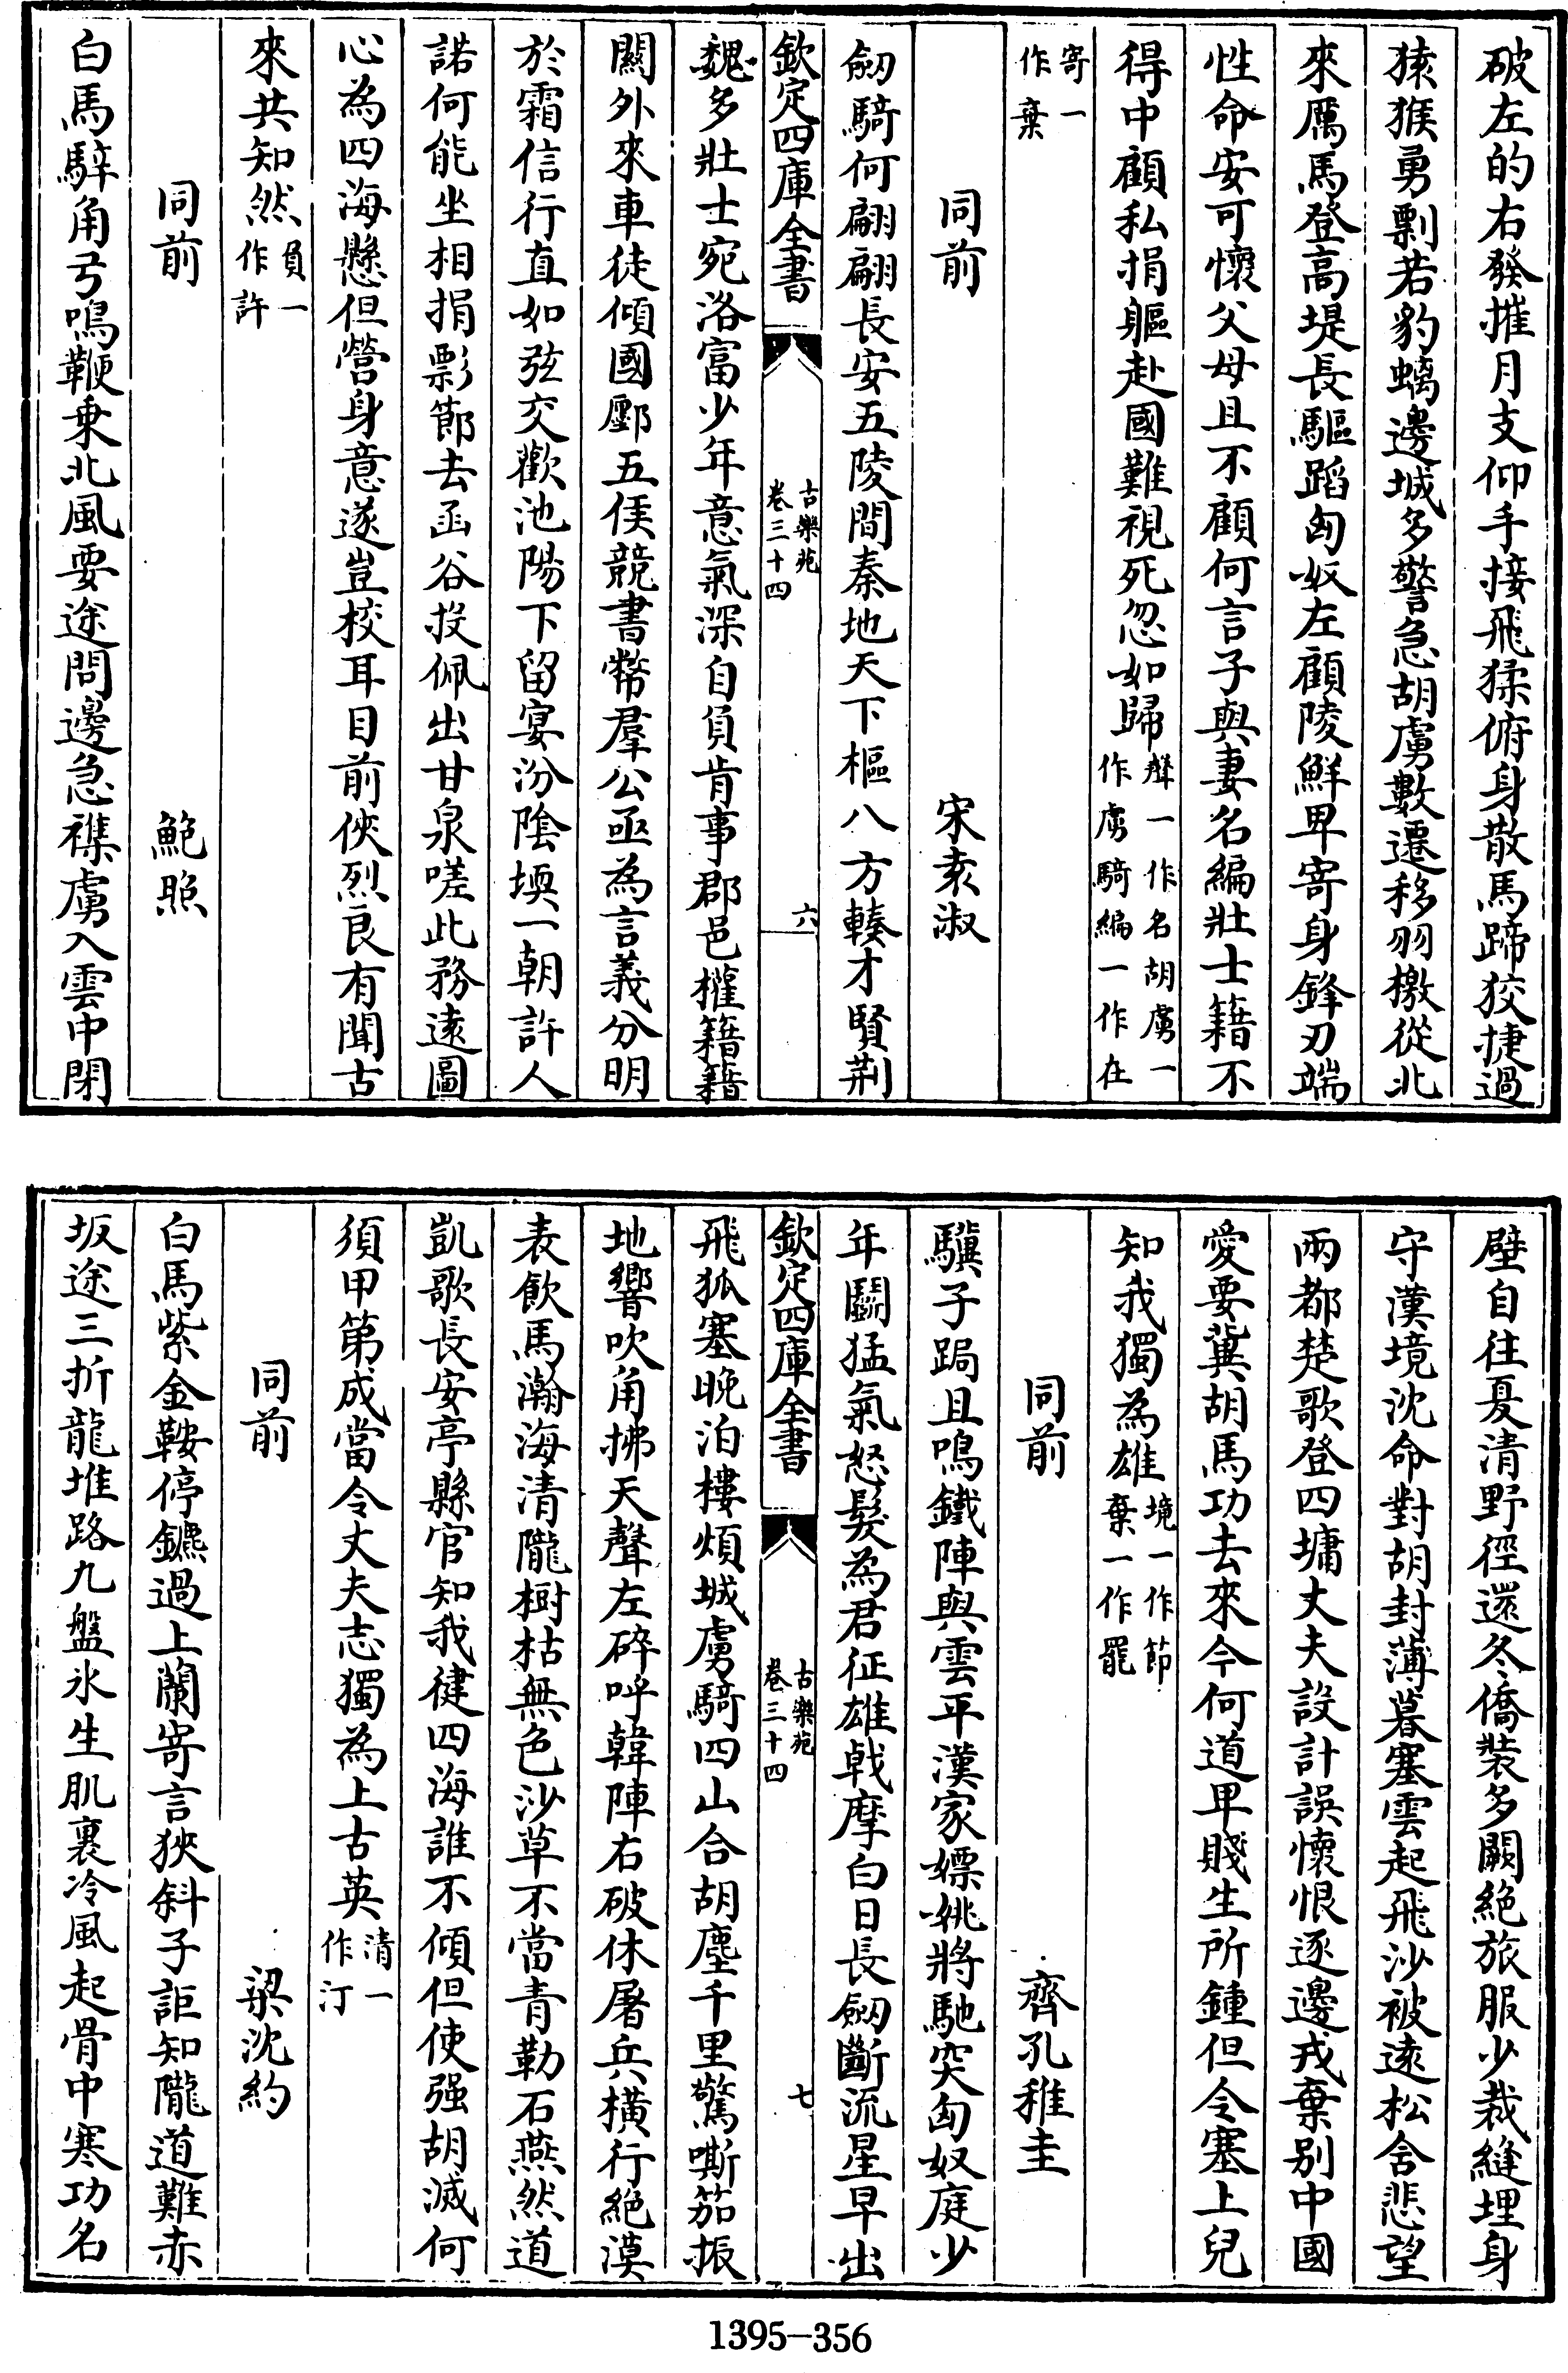 破左的右發摧月支仰手接飛猱俯身散馬蹄狡捷過
猿猴勇剽若豹螭邊城多警急胡虜數遷移羽檄從北
來厲馬登高堤長驅蹈匈奴左顧陵鮮卑寄身鋒刃端
性命安可懷父母且不顧何言子與妻名編壯士籍不
得中顧私捐軀赴國難視死忽如歸聲一作名胡虜一
作虜騎編一作在
寄一
作棄
同前 宋袁淑
劒騎何翩翩長安五陵間秦地天下樞八方輳才賢荆
欽定四庫全書 古樂苑 卷三十四 六
魏多壯士宛洛富少年意氣深自負肯事郡邑權籍籍
關外來車徒傾國鄽五侯競書幣羣公亟為言義分明
於霜信行直如弦交歡池陽下留宴汾陰堧一朝許人
諾何能坐相捐彯節去函谷投佩出甘泉嗟此務遠圖
心為四海懸但營身意遂豈校耳目前俠烈良有聞古
來共知然負一
作許
同前 鮑照
白馬騂角弓鳴鞭乗北風要途問邊急襍虜入雲中閉
壁自往夏清野徑還冬僑裝多闕絶旅服少裁縫埋身
守漢境沈命對胡封薄暮塞雲起飛沙被遠松含悲望
兩都楚歌登四墉丈夫設計誤懷恨逐邊戎棄别中國
愛要冀胡馬功去來今何道卑賤生所鍾但令塞上兒
知我獨為雄境一作節
棄一作罷
同前 齊孔稚圭
驥子跼且鳴鐵陣與雲平漢家嫖姚將馳突匈奴庭少
年鬭猛氣怒髮為君征雄戟摩白日長劒斷流星早出
欽定四庫全書 古樂苑 卷三十四 七
飛狐塞晚泊樓煩城虜騎四山合胡塵千里驚嘶笳振
地響吹角拂天聲左碎呼韓陣右破休屠兵橫行絶漠
表飲馬瀚海清隴樹枯無色沙草不當青勒石燕然道
凱歌長安亭縣官知我健四海誰不傾但使强胡滅何
須甲第成當令丈夫志獨為上古英清一
作汀
同前 梁沈約
白馬紫金鞍停鑣過上蘭寄言狹斜子詎知隴道難赤
坂途三折龍堆路九盤氷生肌裏冷風起骨中寒功名
1395-356